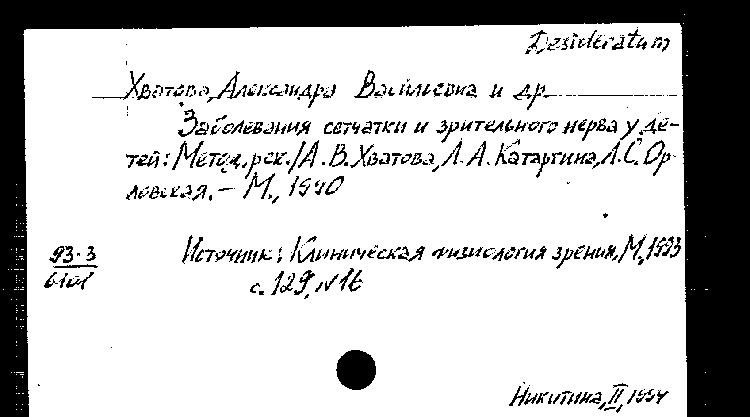 Desideratum
Хватова, Александра Васильевна и др.
Заболевания сетчатки и зрительного нерва у де-
тей: Метод. рек. / А. В. Хватова, Л. А. Катаргина, Л. С. Ор-
ловская. - М., 1990
93-3
6101
Источник: Клиническая физиология зрения, М., 1993
с. 129, N 16
Никитина, II, 1994